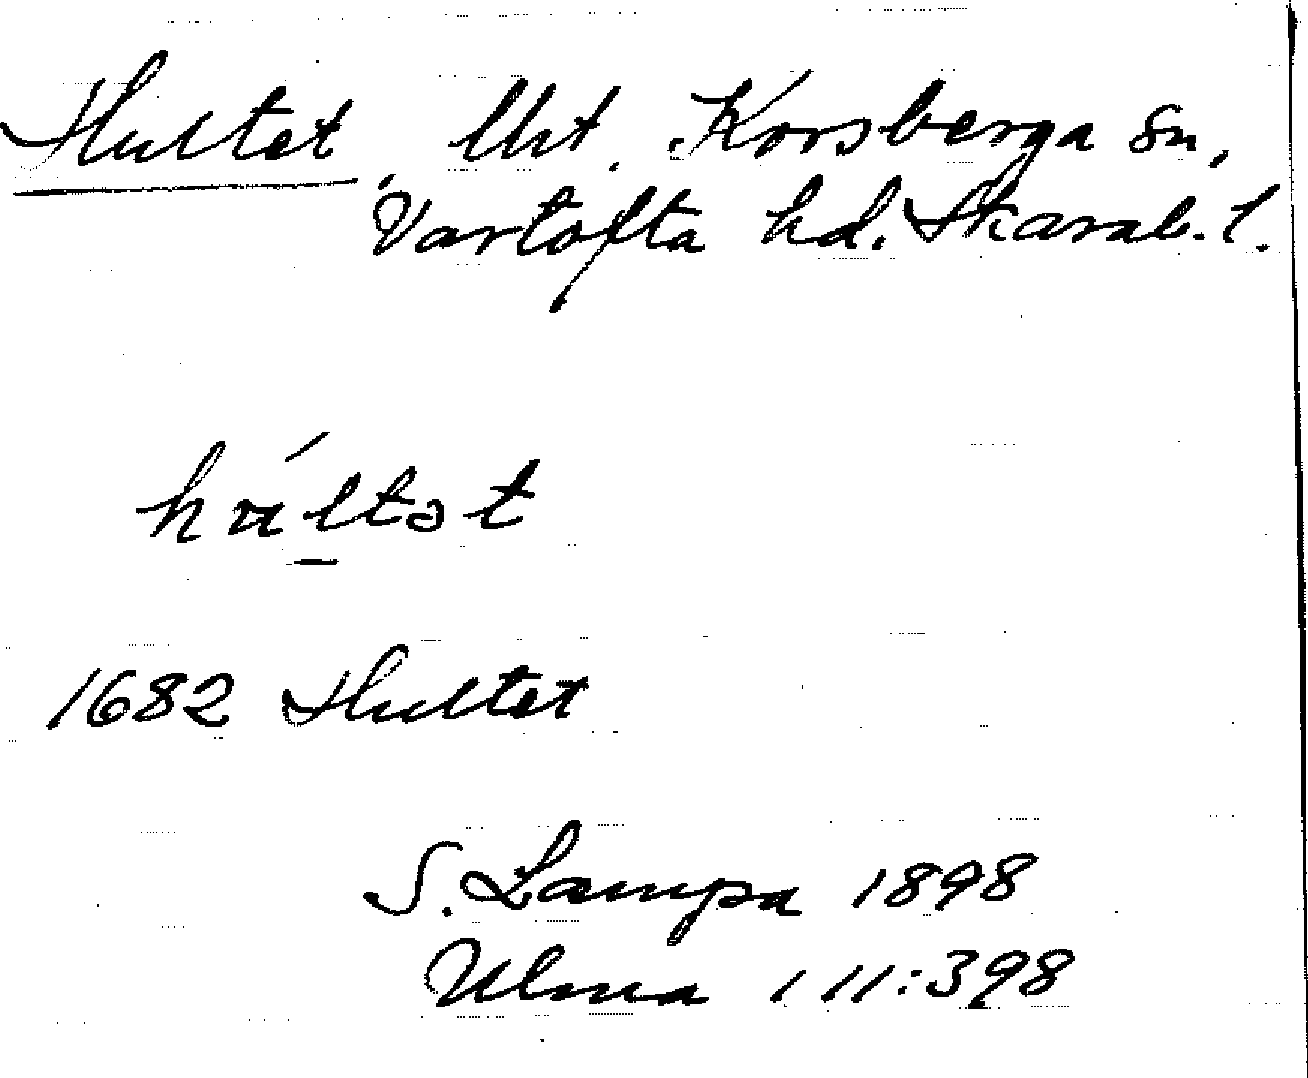 Hultet, Uht. Korsberga sn,
Vartofta hd. Skarab. l.
húltət
1682 Hultet
S. Lampa 1898
Ulma 111:398